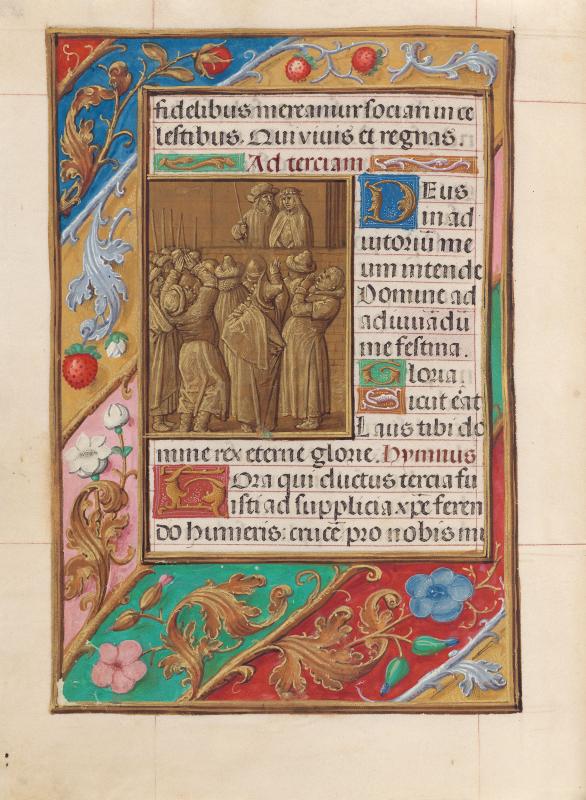 fidelibus mereamur sociari in ce
lestibus. Qui vivis et regnas.
Ad terciam
Deus
in ad
iutoriū me
um intende
Domine ad
adiuuādū
me festina.
Gloria
Sicut erat
Laus tibi do
mine rex eterne glorie. Hymnus
Hora qui ductus tercia fu
isti ad supplicia xp̄e feren
do humeris: crucē pro nobis mi